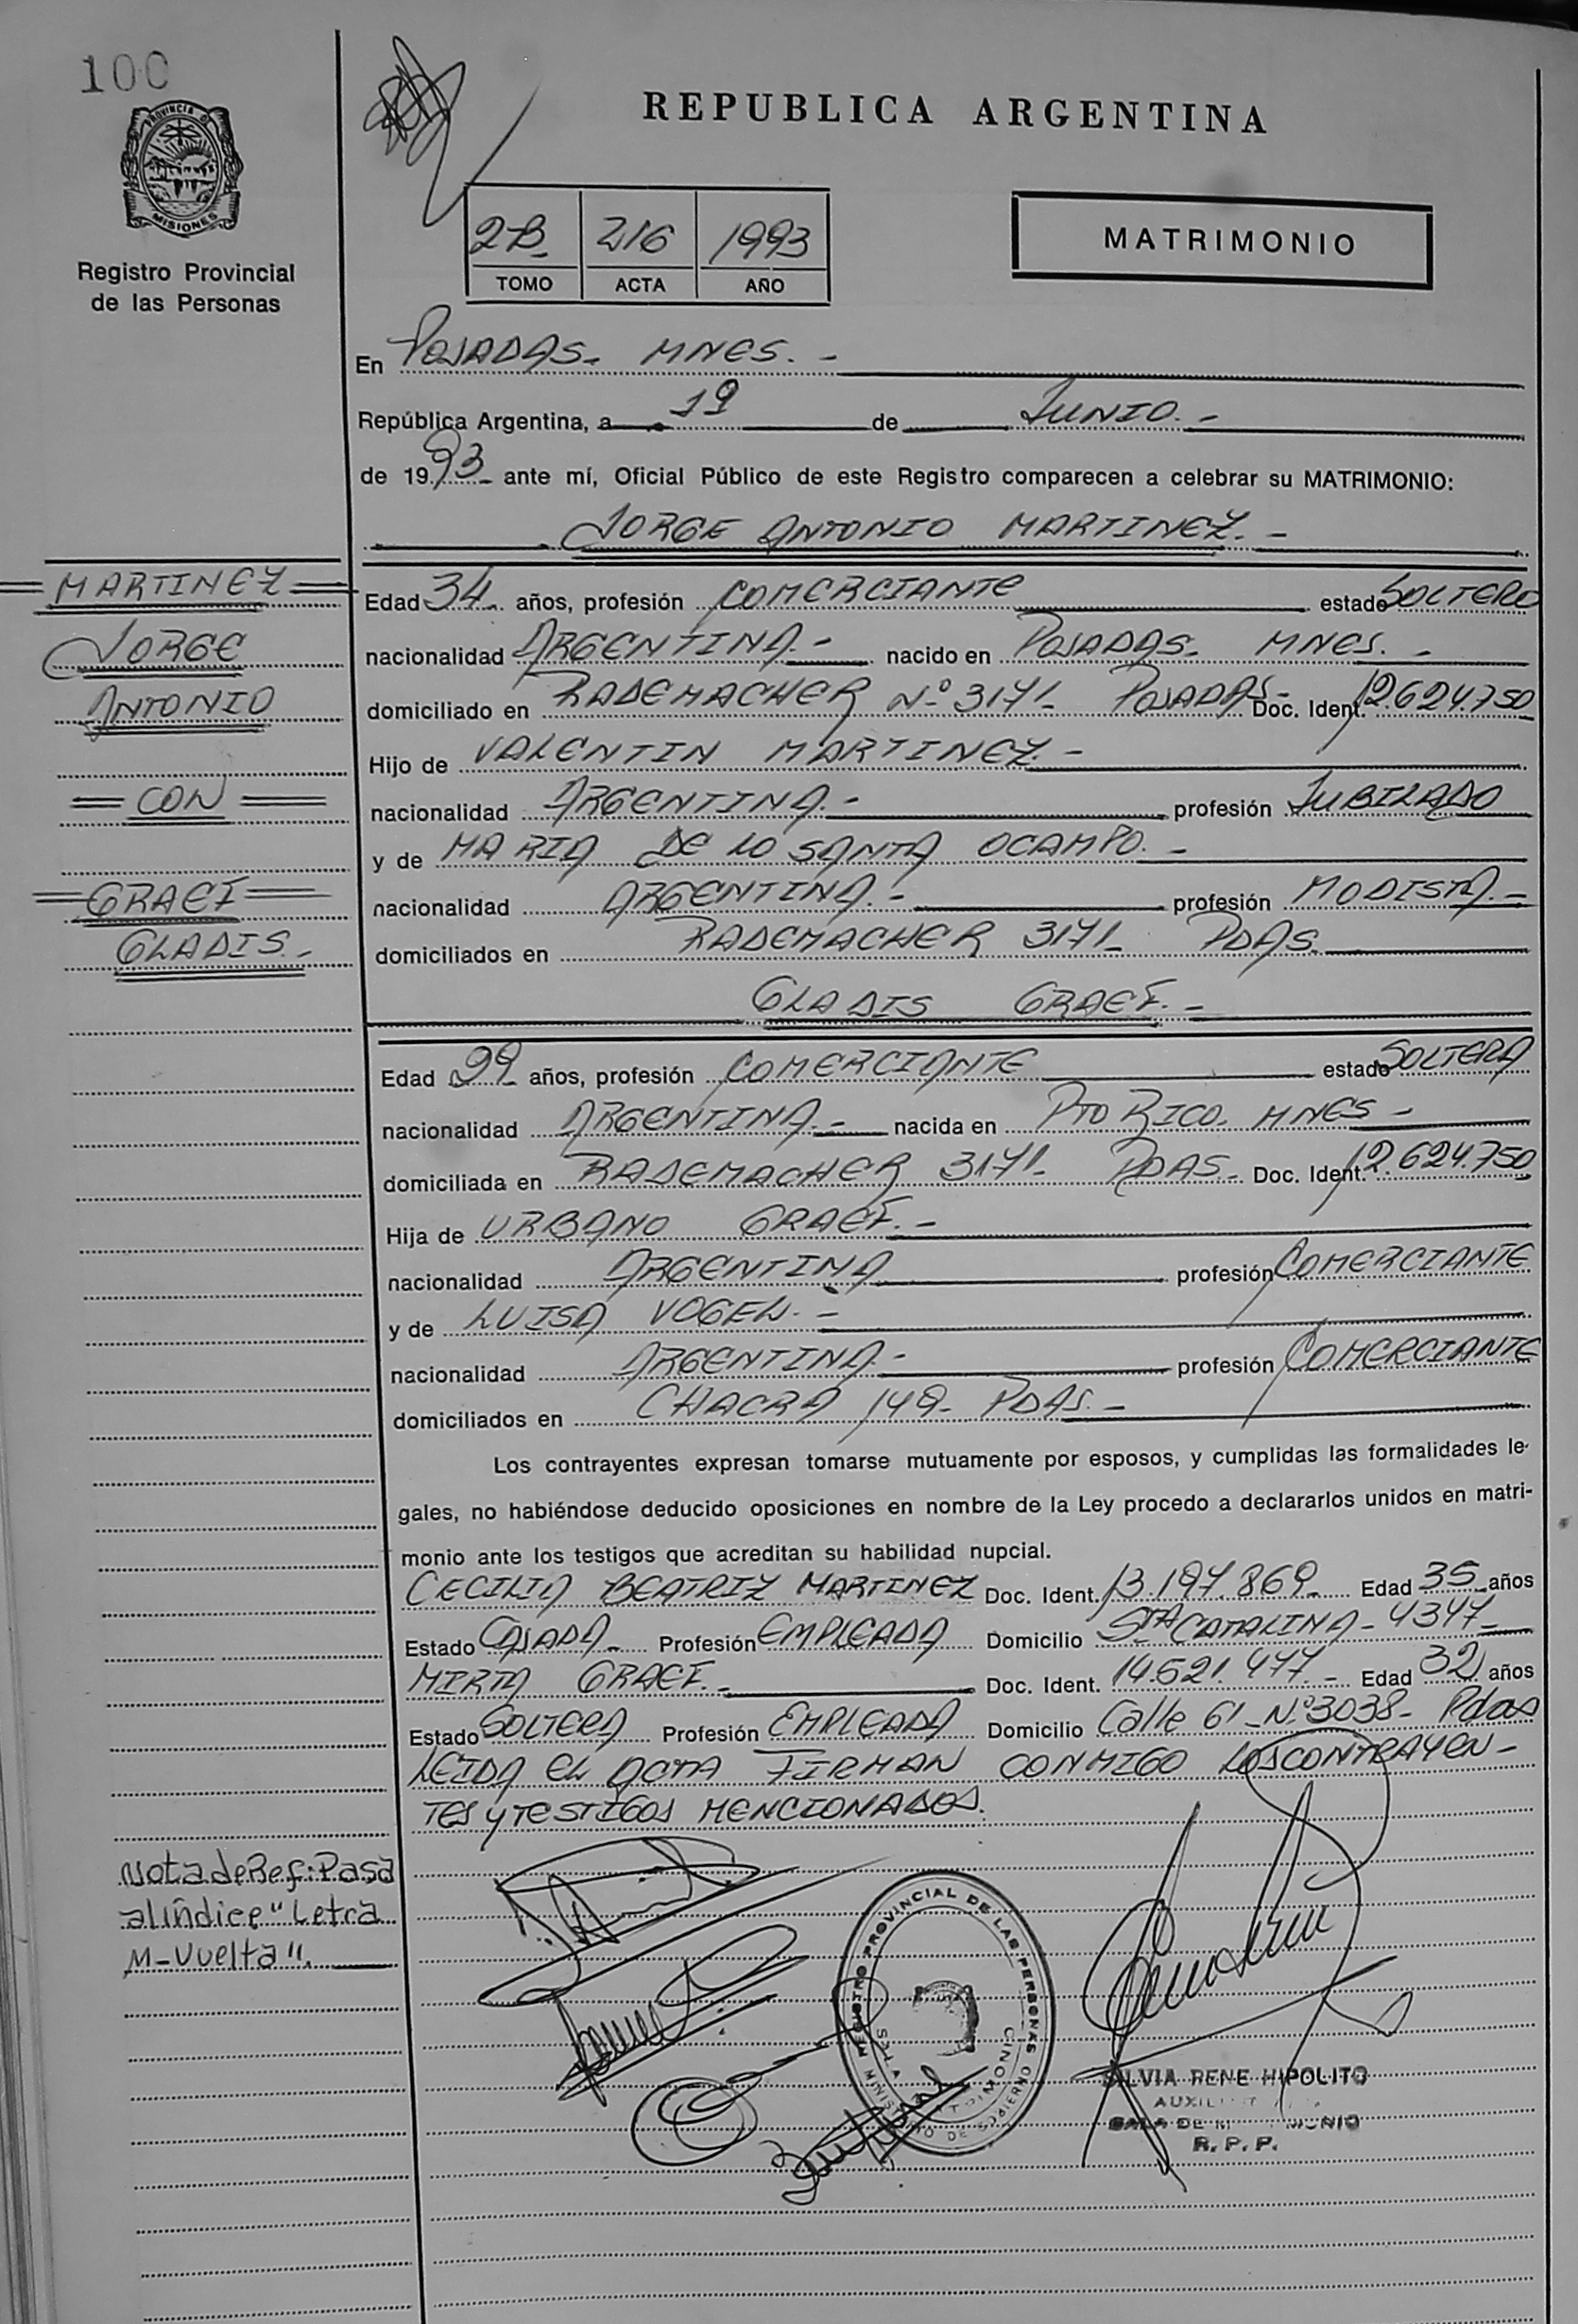 100
PROVINCIA D
MISIONES
Registro Provincial
de las Personas
REPUBLICA ARGENTINA
2-B- 216 1993
TOMO ACTA AÑO
MATRIMONIO
En POSADAS- MNES. -
República Argentina, a 19 de JUNIO. -
de 1993- ante mí, Oficial Público de este Registro comparecen a celebrar su MATRIMONIO:
JORGE ANTONIO MARTINEZ. -
MARTINEZ
JORGE
ANTONIO
CON
GRAEF
GLADIS. -
Edad 34 años, profesión COMERCIANTE estado SOLTERO
nacionalidad ARGENTINA. - nacido en POSADAS- MNES. -
domiciliado en RADEMACHER Nº 3171- POSADAS- Doc. Ident. 12.624.750
Hijo de VALENTIN MARTINEZ. -
nacionalidad ARGENTINA. - profesión JUBILADO
y de MARIA DE LO SANTA OCAMPO. -
nacionalidad ARGENTINA. - profesión MODISTA. -
domiciliados en RADEMACHER 3171- PDAS.
GLADIS GRAEF. -
Edad 29 años, profesión COMERCIANTE estado SOLTERA
nacionalidad ARGENTINA. - nacida en PTO RICO. MNES -
domiciliada en RADEMACHER 3171- PDAS- Doc. Ident. 12.624.750
Hija de URBANO GRAEF. -
nacionalidad ARGENTINA profesión COMERCIANTE
y de LUISA VOGEL. -
nacionalidad ARGENTINA. - profesión COMERCIANTE
domiciliados en CHACRA 149- PDAS. -
Los contrayentes expresan tomarse mutuamente por esposos, y cumplidas las formalidades le-
gales, no habiéndose deducido oposiciones en nombre de la Ley procedo a declararlos unidos en matri-
monio ante los testigos que acreditan su habilidad nupcial.
CECILIA BEATRIZ MARTINEZ Doc. Ident. 13.197.869- Edad 35 años
Estado CASADA- Profesión EMPLEADA Domicilio STA CATALINA - 4347-
MIRTA GRAEF. - Doc. Ident. 14.621.477- Edad 32 años
Estado SOLTERA Profesión EMPLEADA Domicilio Calle 61 - Nº 3038- Pdas
LEIDA EL ACTA FIRMAN CONMIGO LOS CONTRAYEN-
TES y TESTIGOS MENCIONADOS.
Nota de Ref: Pasa
al índice "Letra
M-Vuelta".
REGISTRO PROVINCIAL DE LAS PERSONAS
SILVIA RENE HIPOLITO
SALA DE
R. P. P.